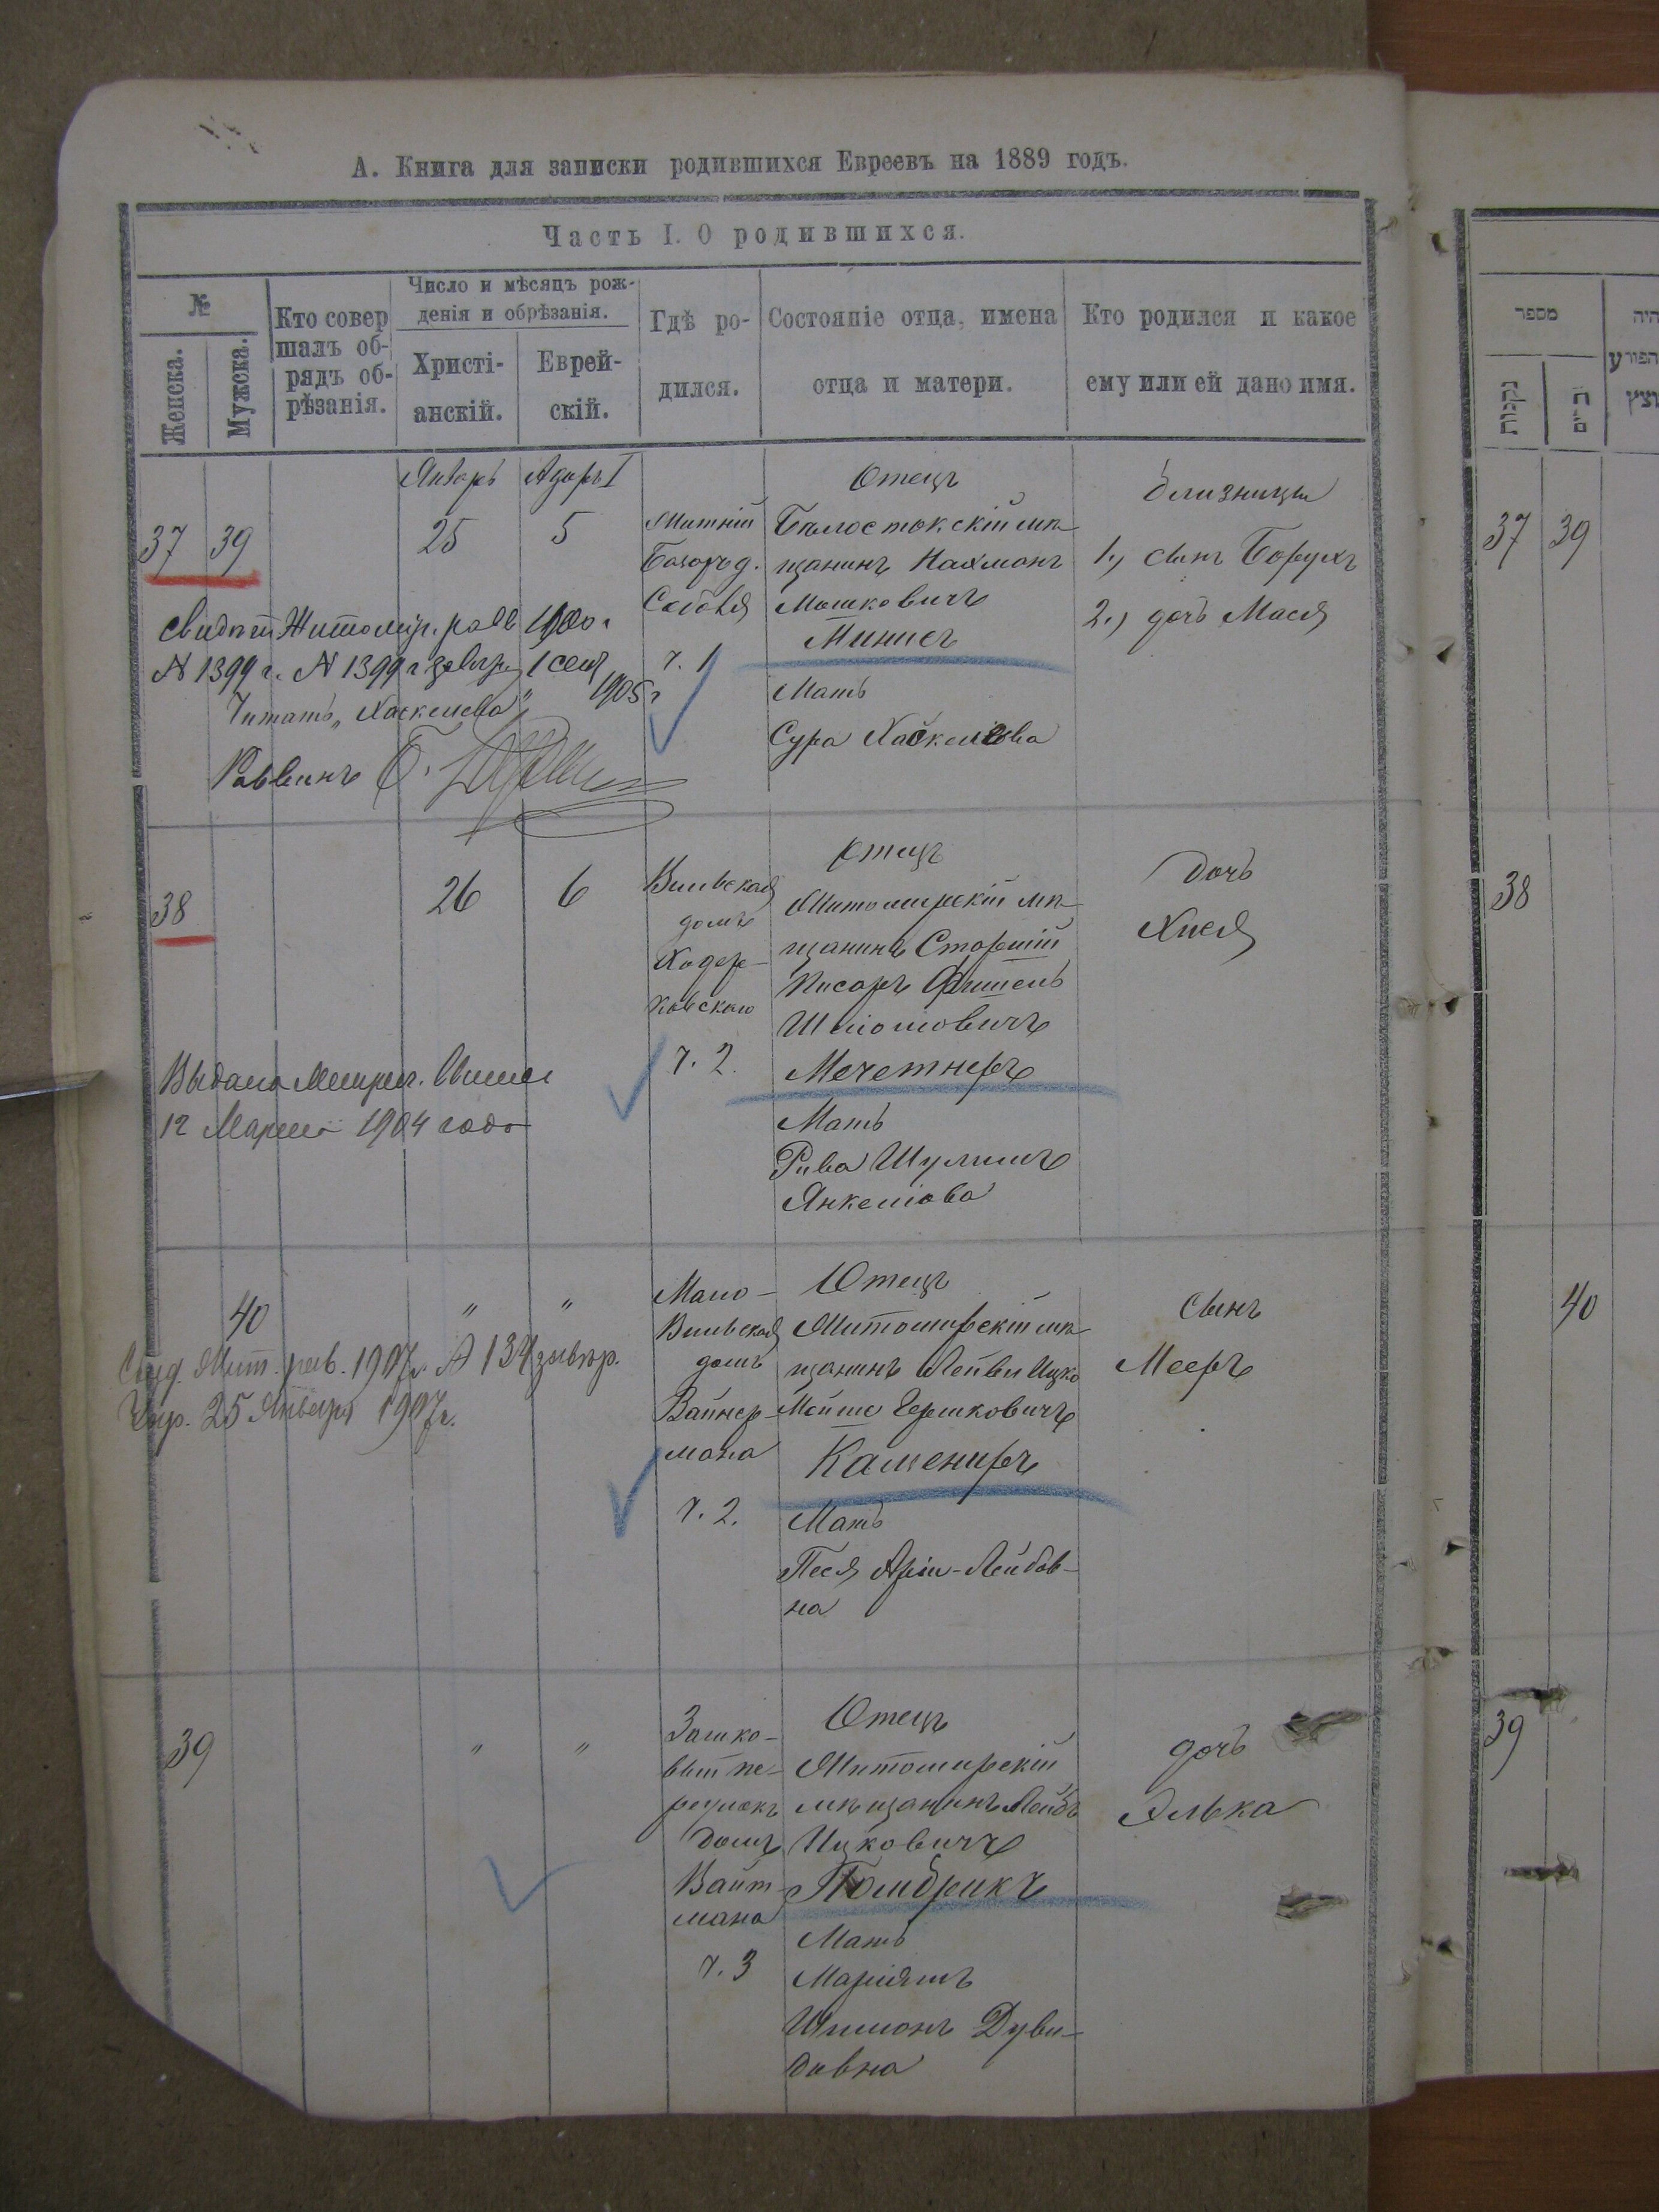 А. Книга для записки родившихся Евреевъ на 1889 годъ.
Часть I. О родившихся.
№
Женска.
Мужска.
Кто совер
шалъ об-
рядъ об-
рѣзанія.
Число и мѣсяцъ рож-
денія и обрѣзанія.
Христі-
анскій.
Еврей-
скій.
Гдѣ ро-
дился.
Состояніе отца, имена
отца и матери.
Кто родился и какое
ему или ей дано имя.
37 39
Январь
25
Адаръ I
5
ч. 1
Отецъ
Бѣлостокскій мѣ-
щанинъ Нахманъ
Мошковичъ
Минисъ
Мать
Сура Хаскелева
близницы
1, сынъ Борухъ
2, дочь Мася
Житомір. равв 1900 г
N 1399 г. N 1399 г 1 сент
1905 г
Читать „Хаскелева"
Раввинъ Б.
38
26
6
Вильская
домъ
Ходор-
ковскаго
ч. 2.
Отецъ
Житомирскій мѣ-
щанинъ Старшій
Писарь Фишель
Шліомовичъ
Мечетнеръ
Мать
Рива Шулимъ
Янкелiова
дочь
Хися
Выдана Метрич.
12 Марта 1904 года
40
"
"
Мало-
Вильская
домъ
Вайнер-
мана
ч. 2.
Отецъ
Житомирскій мѣ
щанинъ Лейви Ицко
Мойше Гершковичъ
Камениръ
Мать
Песя Арiи-Лейбов-
на
Сынъ
Мееръ
Жит. рав. 1907 г. N 134
25 Января 1907 г.
39
"
"
Замко-
вый пе-
реулокъ
домъ
Вайт-
мана
ч. 3
Отецъ
Житомирскій
мѣщанинъ Лейбъ
Ицковичъ
Мать
Маріямъ
Шимонъ Дуви-
довна
дочь
Элька
מספר
נקבות
37 39
38
40
39